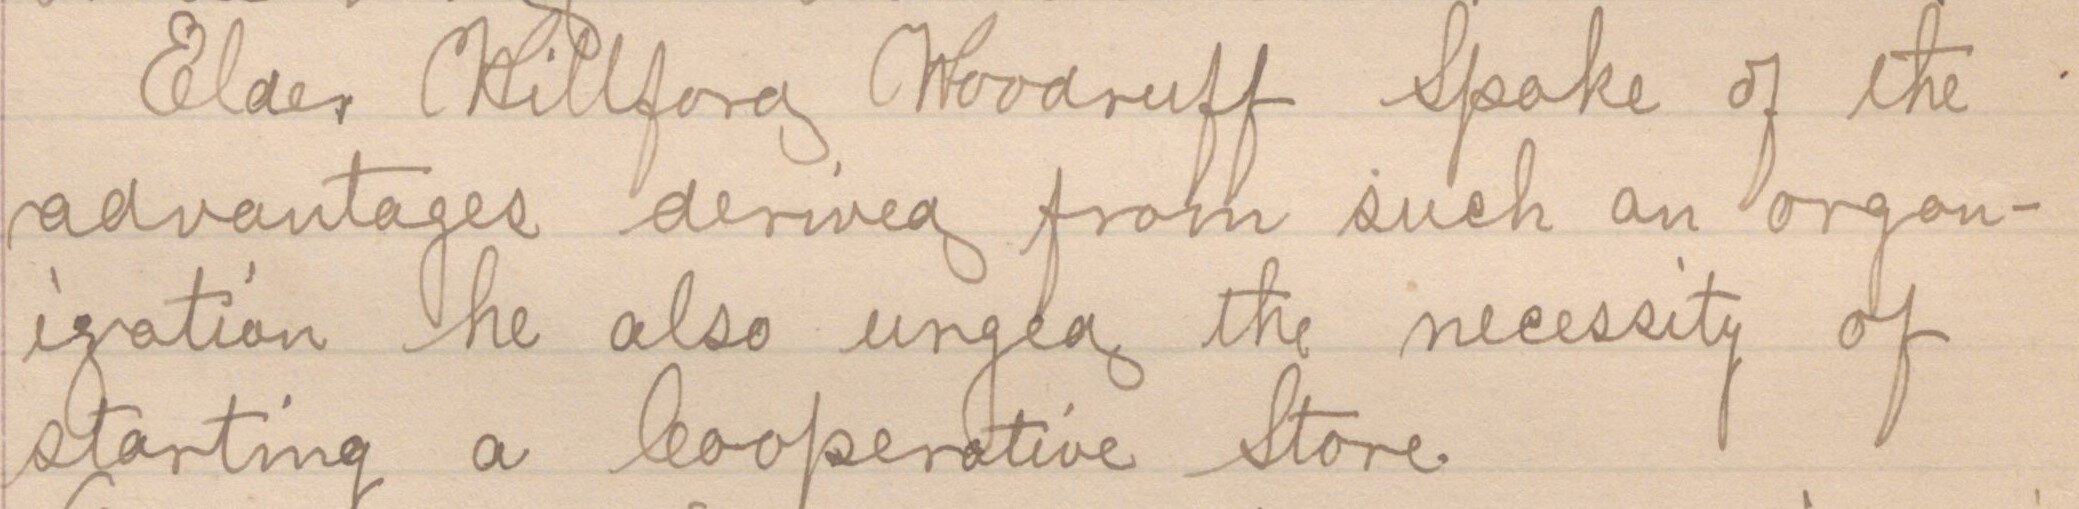 Elder Willford Woodruff Spoke of the
advantages derived from such an organ-
ization he also urged the necessity of
starting a Cooperative Store.